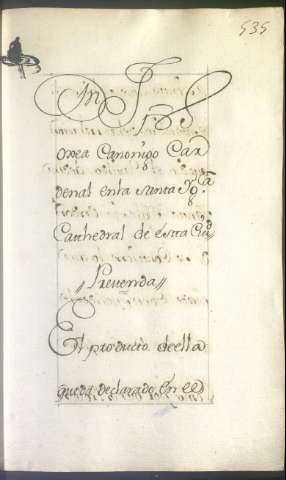 535
onxa Canonigo Car
denal enta Santa Yg.ca
Cathedral de esta Ciud
Prevenda
El producto deella
queda declarado en el